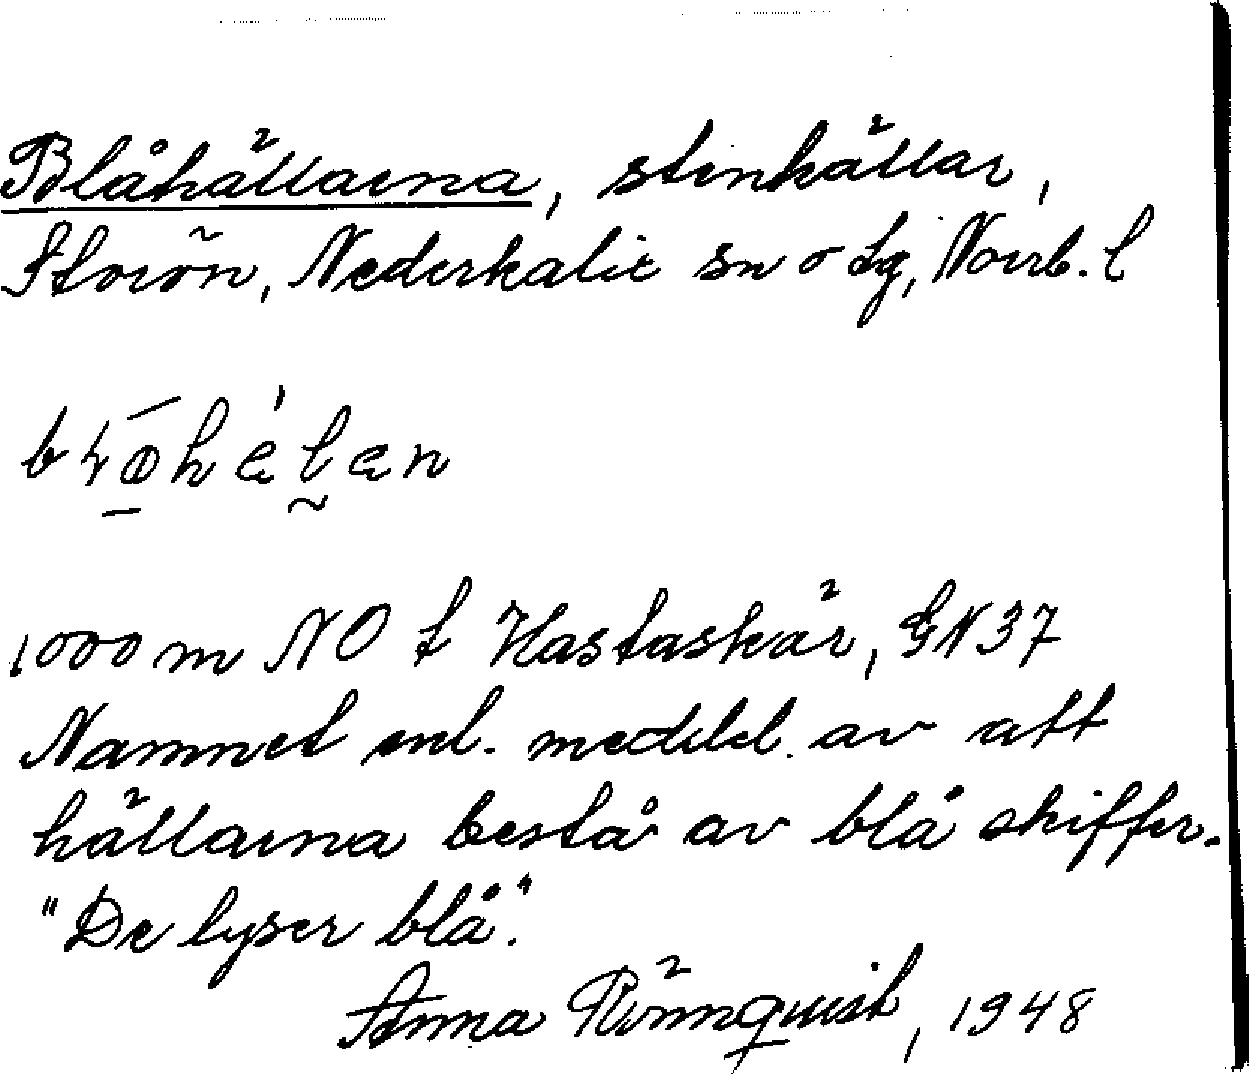 Blåhällarna, stenhällar,
Storön, Nederkalix sn o tg, Norrb. l
1000 m NO t Hastaskär, GN 37
Namnet enl. meddel. av att
hällarna bestå av blå skiffer.
"De lyser blå".
Anna Rönnquist, 1948